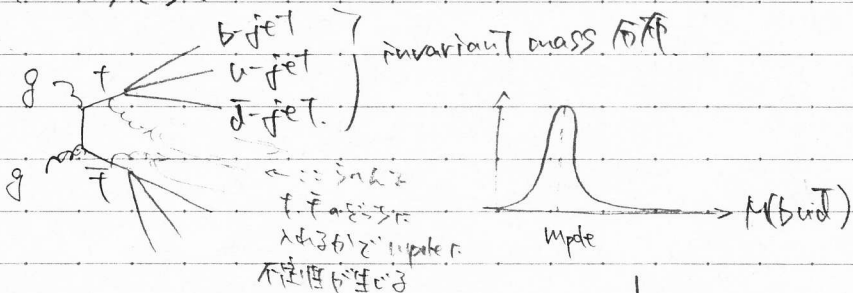 b-jet
u-jet
d̄-jet.
invariant mass 分布
g
t
g
t̄
← ここらへんを
t, t̄のどっちに
入れるかで mpoleに
不定性が生じる
mpole
M(bud̄)